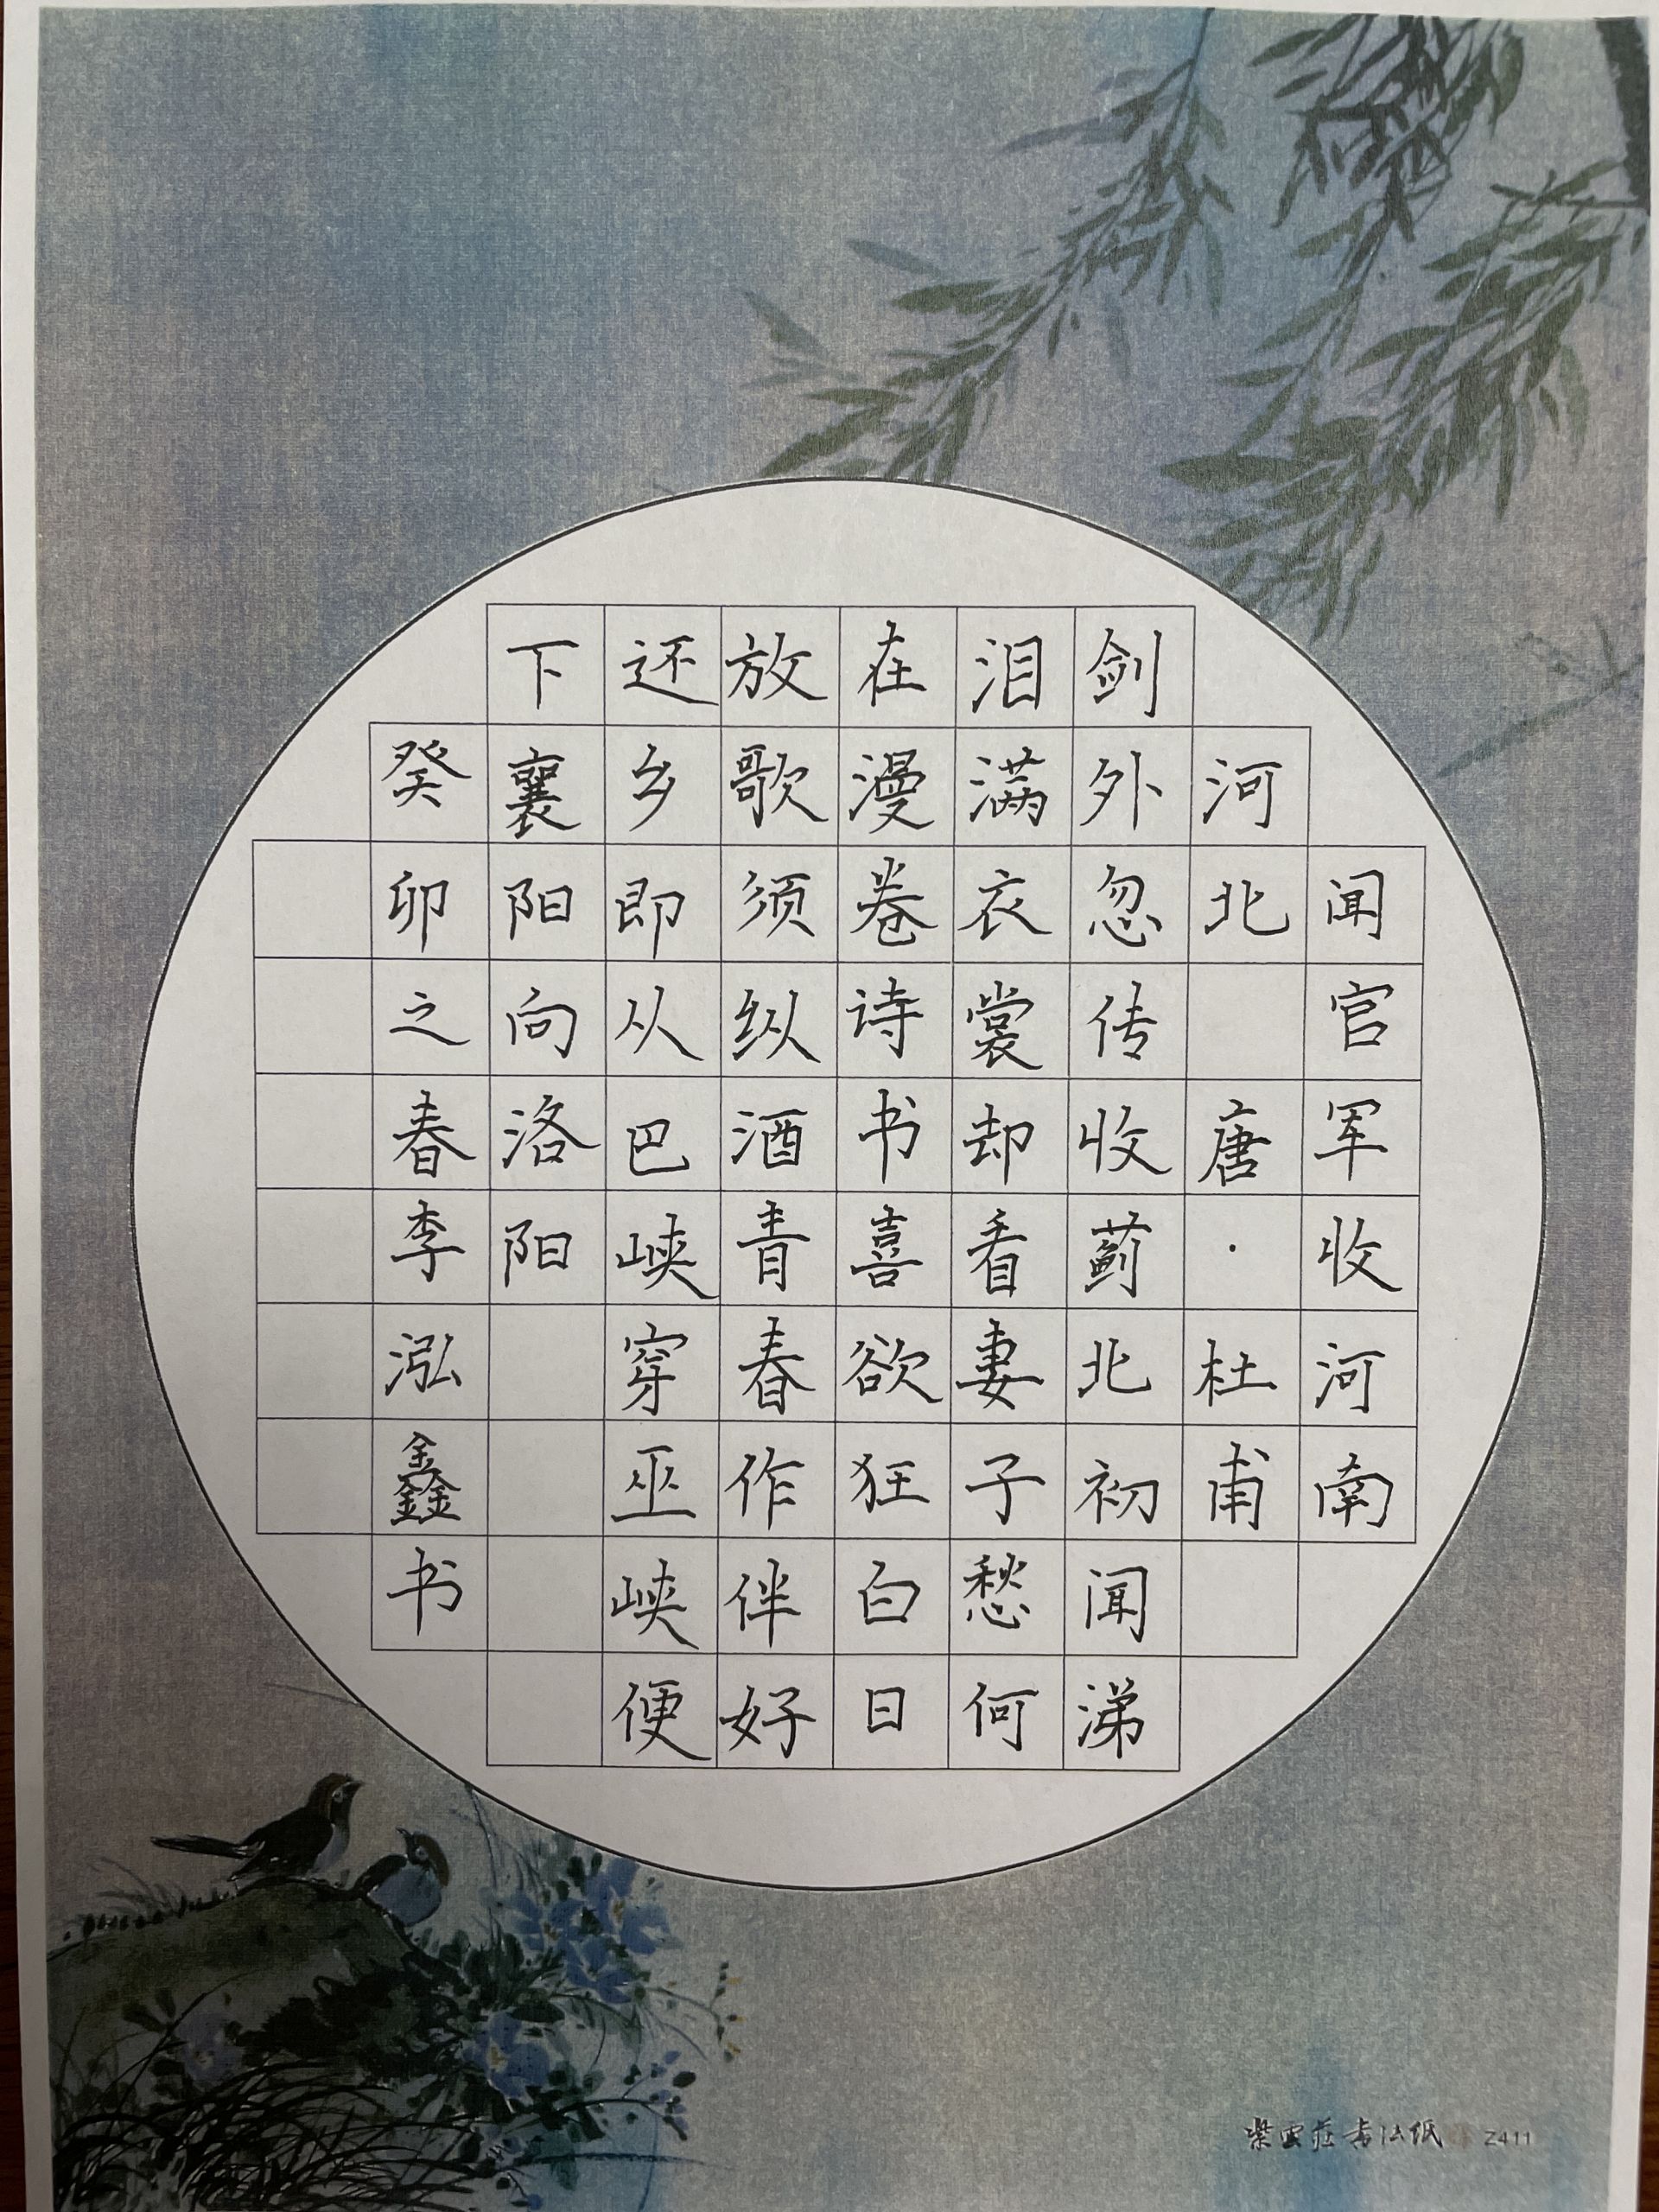 闻官军收河南
河北 唐·杜甫
剑外忽传收蓟北初闻涕
泪满衣裳却看妻子愁何
在漫卷诗书喜欲狂白日
放歌须纵酒青春作伴好
还乡即从巴峡穿巫峡便
下襄阳向洛阳
癸卯之春李泓鑫书
紫云庄书法纸 Z411